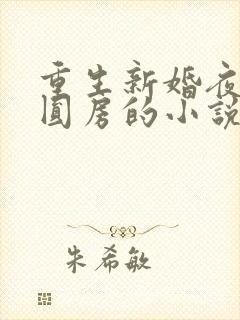 重生新婚夜
圆房的小說
朱希敏